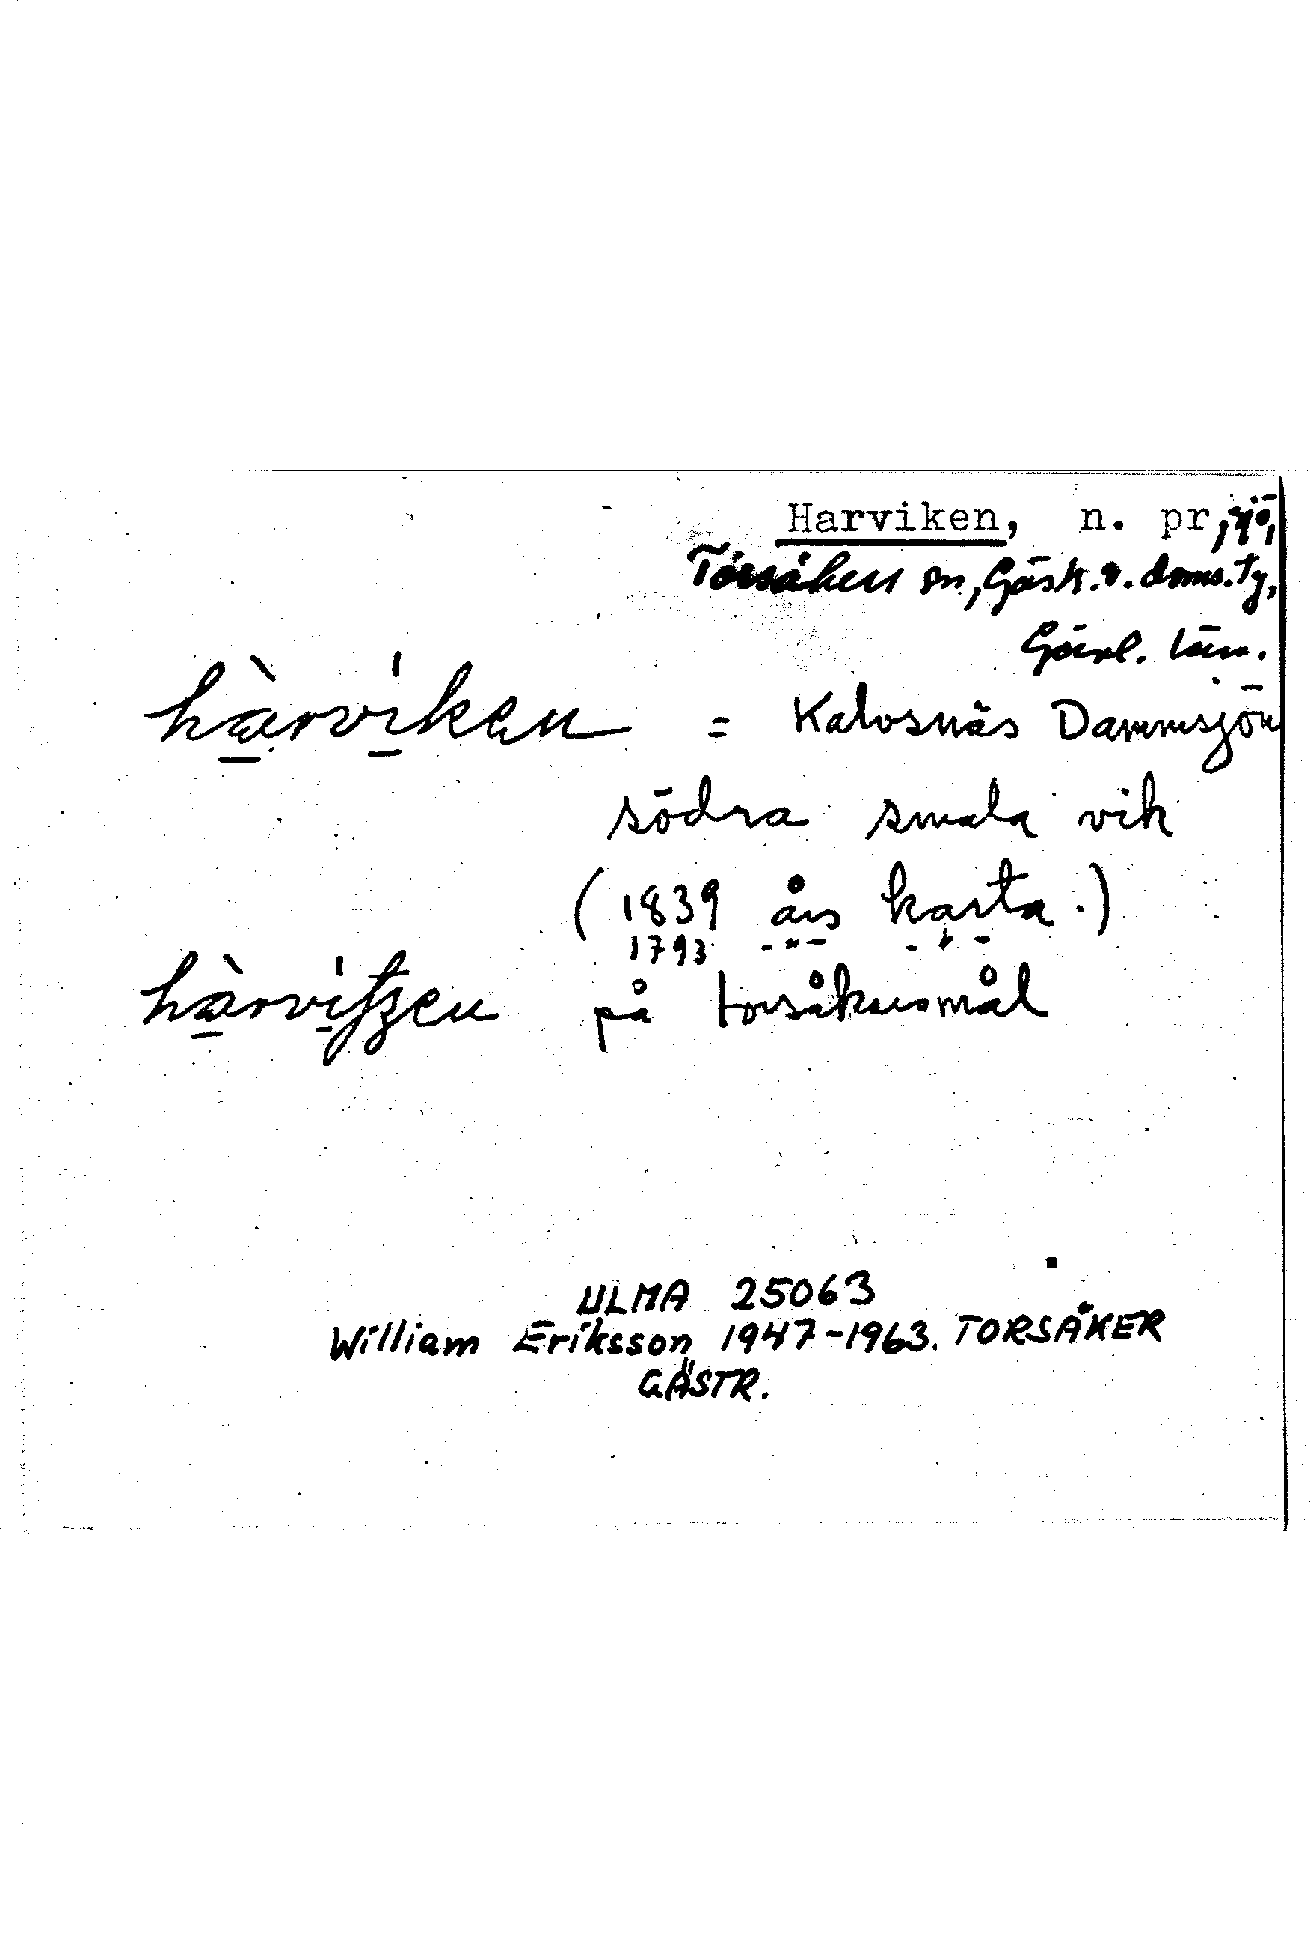 Harviken, n. pr
Torsåkers sn, Gästr. ö. doms. tg,
Gävl. län.
hàrvíken = Kalvsnäs Dammsjön
södra smala vik
(1839 års karta.)
1793 -"- -"-
hàrvitzen på torsåkersmål
ULMA 25063
William Eriksson 1947-1963. TORSÅKER
GÄSTR.